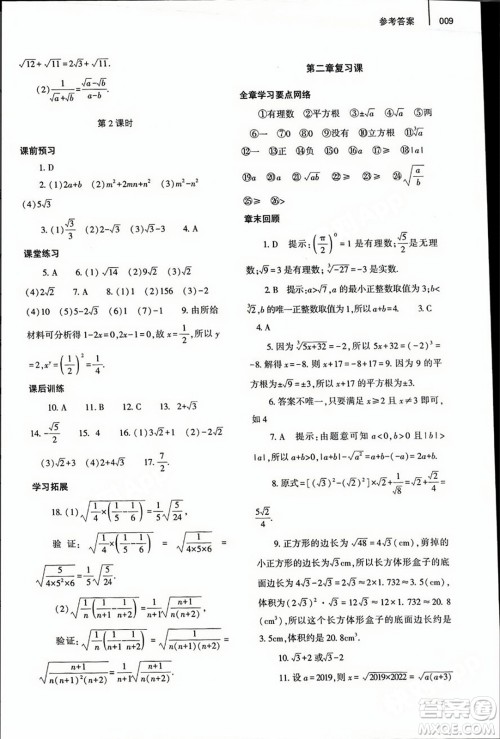 参考答案 009
√12+√11=2√3+√11.
(2) 1/(√a+√b)=(√a-√b)/(a-b).
第 2 课时
课前预习
1. D
2. (1)2a+b (2)m²+2mn+n² (3)√2
(4)5√3
3. (1)√3/3 (2)-√3 (3)√2 (4)3√2
课堂练习
5. A 6. (1)√14 (2)9√5 (3)√2
(4)2√2 7. 1 8. (1)2 (2)156 9. 由所给
材料可分析得 1-2x=0, 2x-1=0, 故 x=1/2, y
=2, xʸ=(1/2)²=1/4.
课后训练
10. A 11. B 12. C 13. 2±√3
14. -√5/2 15. -4√2 16. (1)3√3 (2)√6
(3)√2+2 (4)3-√3 17. 7/2
学习拓展
18. (1)√(1/4×(1/5-1/6))=1/5√(5/24).
验证: √(1/4×(1/5-1/6))=√(1/(4×5×6))=
√(5/(4×5²×6))=1/5√(5/24).
(2)√(1/n(1/(n+1)-1/(n+2)))=1/(n+1)√((n+1)/(n(n+2))).
验证: √(1/n(1/(n+1)-1/(n+2)))=√(1/(n(n+1)(n+2)))=
√((n+1)/(n(n+1)²(n+2)))=1/(n+1)√((n+1)/(n(n+2))).
第二章复习课
全章学习要点网络
①有理数 ②平方根 ③±√a ④√a ⑤两
⑥一 ⑦0 ⑧没有 ⑨0 ⑩立方根 ⑪∛a
⑫一 ⑬正 ⑭负 ⑮0 ⑯a ⑰≥0 ⑱|a|
⑲a ⑳√ab ㉑≥ ㉒≥ ㉓≥ ㉔√(a/b)
㉕≥ ㉖>
章末回顾
1. D 提示: (π/2)⁰=1 是有理数; √5/2 是无理
数; √9=3 是有理数; ∛-27=-3 是有理数.
2. B 提示: a>√7, a 的最小正整数取值为 3; b<
∛2, b 的唯一正整数取值为 1. 3. C
4. A
5. 因为 ∛(5x+32)=-2, 所以 5x+32=(-2)³=
-8. 解得 x=-8. 所以 x+17=9. 因为 9 的平方根为
±√9=±3, 所以 x+17 的平方根是±3.
6. 答案不唯一, 只要满足 x≥2 且 x≠3 即可,
如 4
7. A 提示: 由题意可知 a<0, b>0 且|b|>
|a|. 所以
8. 原式=[(√3)²-(√2)²]×√2+√2/4=√2+√2/4=
5√2/4.
9. 正方形的边长为√48=4√3(cm), 剪掉的
小正方形的边长为√3 cm, 所以长方体形盒子的底
面边长为 4√3-2√3=2√3≈3.5(cm), 体积为
(2√3)²·√3=12√3≈12×1.732=20.784≈20.8
(cm³), 所以这个长方体形盒子的底面边长约是
3.5cm, 体积约是 20.8cm³.
10. √3+√2 或√3-√2
11. 设 a=2019, 则 x=√(2019×2022)=√(a(a+3))